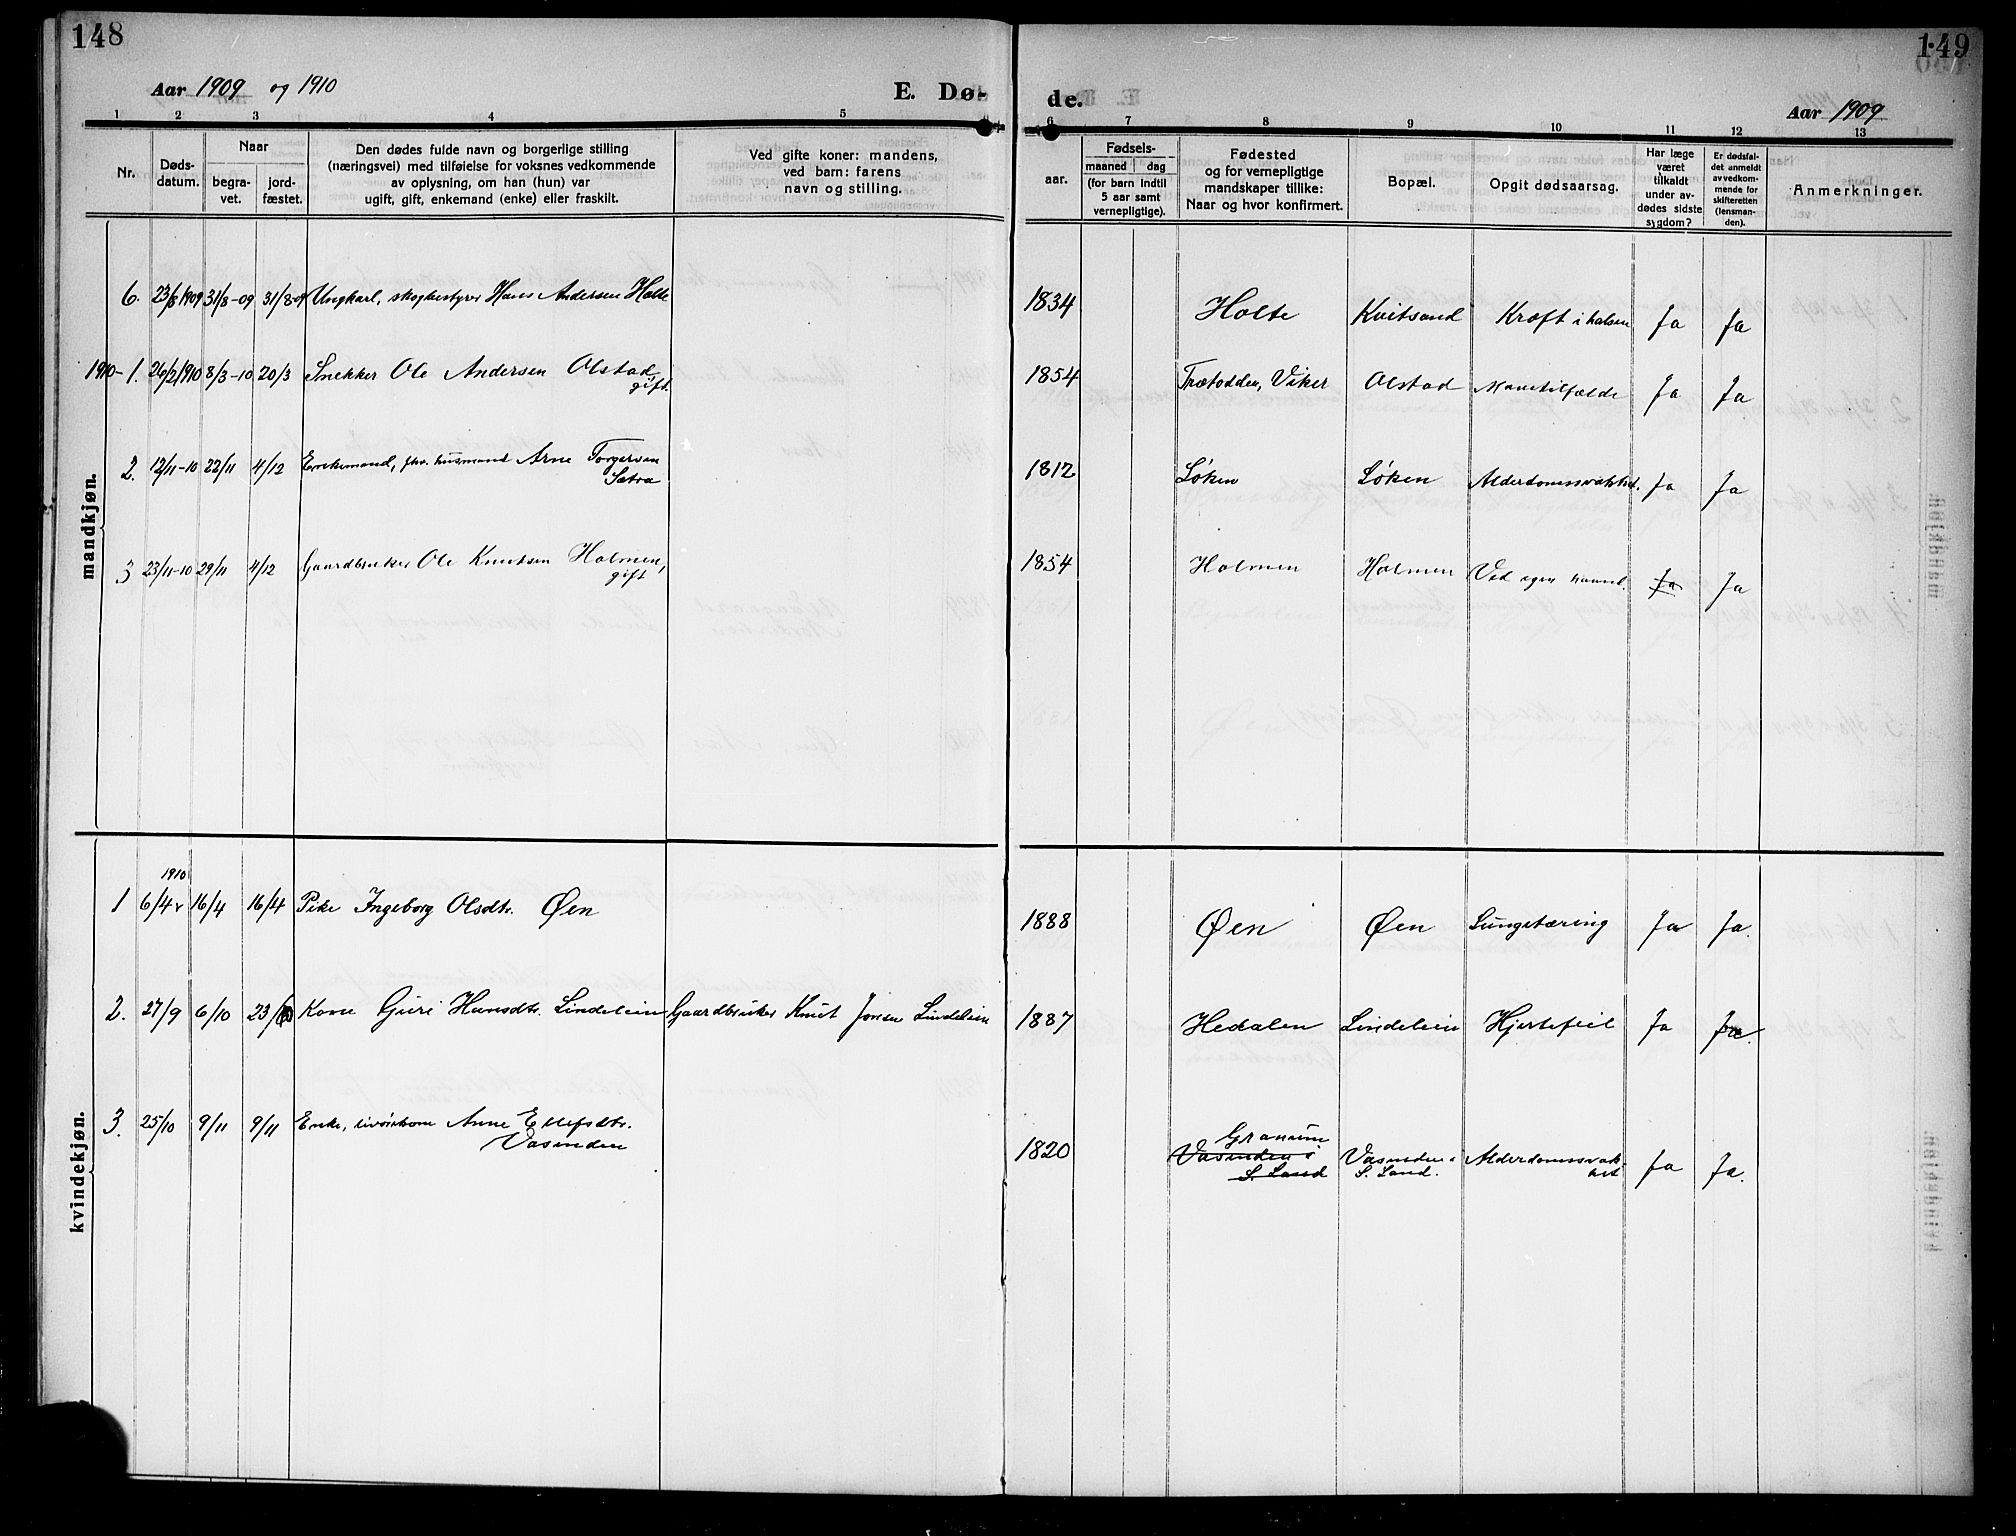 148
149
Aar 1909 og 1910
E. Dø-
de.
Aar 1909
1 2 3 4 5 6 7 8 9 10 11 12 13
Nr.
Døds-
datum.
Naar
begra-
vet.
jord-
fæstet.
Den dødes fulde navn og borgerlige stilling
(næringsvei) med tilføielse for voksnes vedkommende
av oplysning, om han (hun) var
ugift, gift, enkemand (enke) eller fraskilt.
Ved gifte koner: mandens,
ved barn: farens
navn og stilling.
Fødsels-
aar.
maaned
dag
(for barn indtil
5 aar samt
vernepligtige).
Fødested
og for vernepligtige
mandskaper tillike:
Naar og hvor konfirmert.
Bopæl.
Opgit dødsaarsag.
Har læge
været
tilkaldt
under av-
dødes sidste
sygdom?
Er dødsfal-
det anmeldt
av vedkom-
mende for
skifteretten
(lensman-
den).
Anmerkninger.
mandkjøn.
6. 23/8 1909 31/8-09 31/8-09 Ungkarl, skogbestyrer Hans Andersen Holte 1834 Holte Kvitsand Kræft i halsen Ja Ja
1910- 1. 26/2 1910 8/3-10 20/3 Snekker Ole Andersen Olstad, 1854 Trætodden, Viker Olstad Mavetilfælde Ja Ja
gift.
2. 12/11-10 22/11 4/12 Enkemand, fhv. husmand Arne Torgersen 1812 Løken Løken Alderdomssvakhet. Ja Ja
Sætra
3 23/11-10 29/11 4/12 Gaardbruker Ole Knutsen Holmen, 1854 Holmen Holmen Ved egen haand. Ja Ja
gift
kvindekjøn.
1910
1 6/4 16/4 16/4 Pike Ingeborg Olsdtr. Øen 1888 Øen Øen Lungetæring Ja Ja.
2. 27/9 6/10 23/10 Kone Guri Hansdtr. Lindelien Gaardbruker Knut Jonsen Lindelien 1887 Hedalen Lindelien Hjertefeil Ja Ja.
3. 25/10 9/11 9/11 Enke, livørekone Anne Ellefsdtr. 1820 Granum
Vasenden Vasenden i Vasenden i Alderdomssvak- Ja Ja.
S. Land S. Land. het